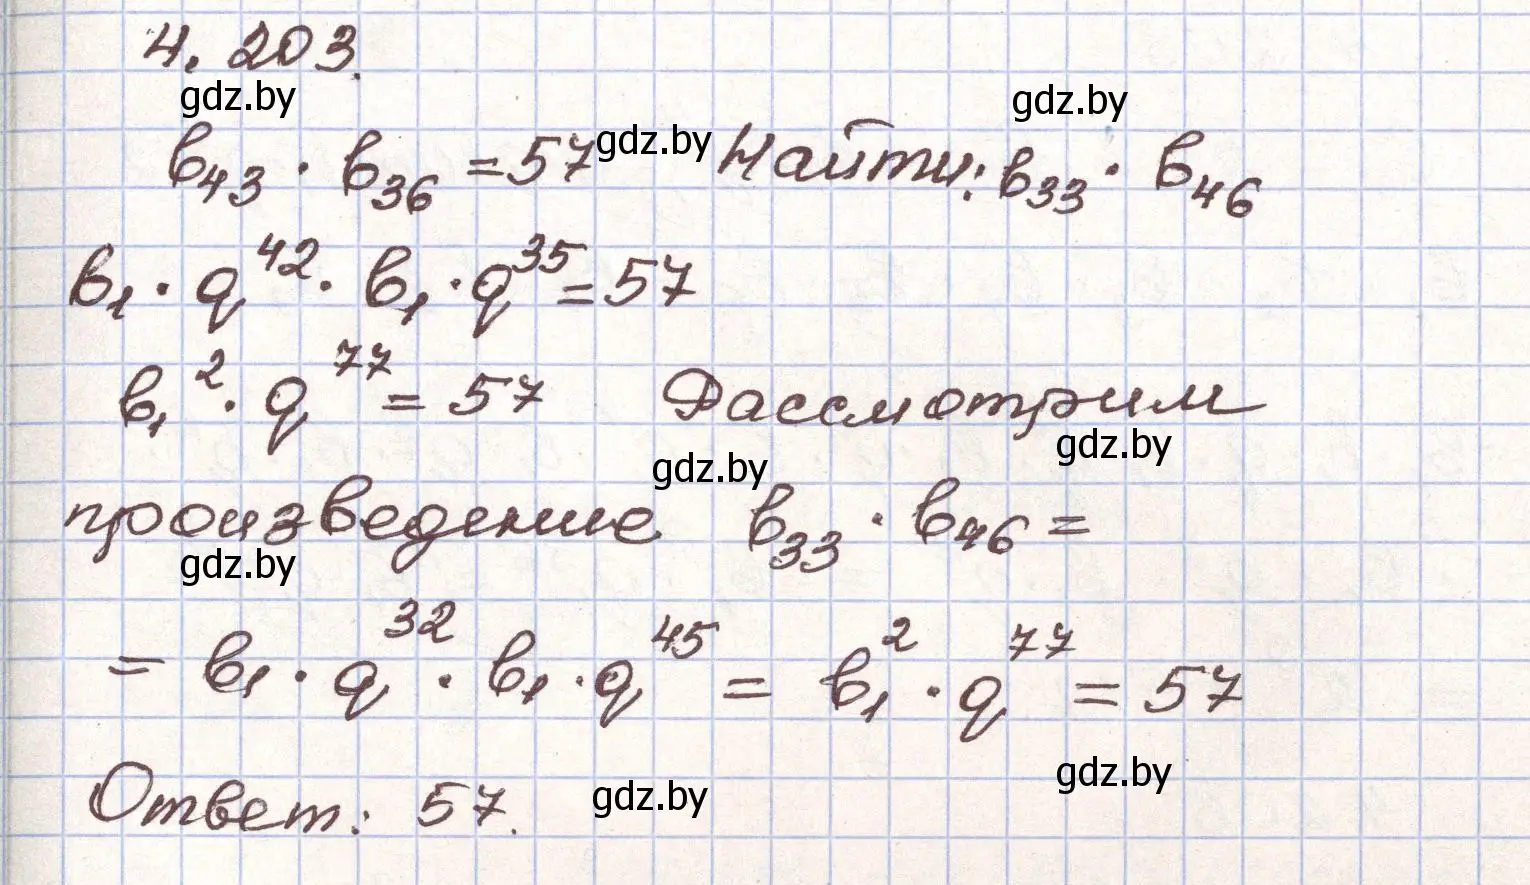 4.203.
gdz.by gdz.by
b₄₃ · b₃₆ = 57 gdz.by Найти: b₃₃ · b₄₆
b₁ · q⁴² · b₁ · q³⁵ = 57
b₁² · q⁷⁷ = 57 Рассмотрим
gdz.by gdz.by
произведение b₃₃ · b₄₆ =
gdz.by
= b₁ · q³² · b₁ · q⁴⁵ = b₁² · q⁷⁷ = 57
gdz.by gdz.by
Ответ: 57.